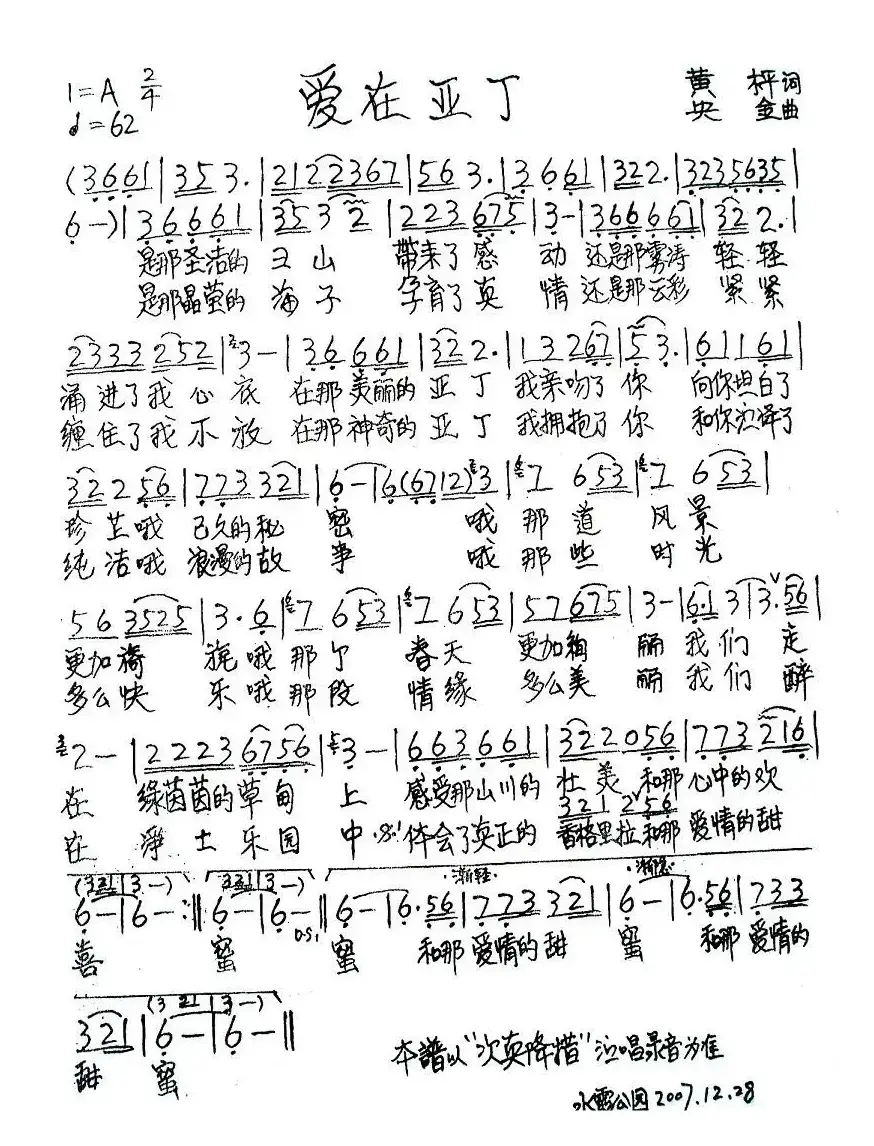 1=A 2/4 爱在亚丁 黄枰词
♩=62 央金曲
(3661|353.|2122367|563.|3661|322.|3235635|
6-)|36661|3532|223675|3-|366661|322.|
是那圣洁的 雪山 带来了感 动 还是那雾涛 轻轻
是那晶莹的 海子 孕育了真 情 还是那云彩 紧紧
2333252|3-|36661|322.|13267|53.|61161|
涌进了我心底 在那美丽的亚丁 我亲吻了你 向你坦白了
缠住了我不放 在那神奇的亚丁 我拥抱了你 和你演译了
32256|773321|6-|6(6712)3|7653|7653|
珍芷哦 已久的秘 密 哦那道 风景
纯洁哦 浪漫的故 事 哦那些 时光
563525|3.6|7653|7653|57675|3-|6.13|3.56|
更加旖 旎哦那个 春天 更加绚 丽我们 走
多么快 乐哦那段 情缘 多么美 丽我们 醉
2-|22236756|3-|663661|322056|773216|
在 绿茵茵的草甸 上 感受那山川的 壮美 和那心中的欢
321 256
在 净土乐园 中 体会了真正的 香格里拉和那 爱情的甜
(321|3-) (321|3-) ·渐轻· ·渐慢·
6-|6-:‖6-|6-‖6-|6.56|773321|6-|6.56|733|
D.S.
喜 蜜 蜜 和那爱情的甜 蜜 和那爱情的
(321|3-)
321|6-|6-‖
甜 蜜
本谱以“次真降措”演唱录音为准
水露公园2007.12.28